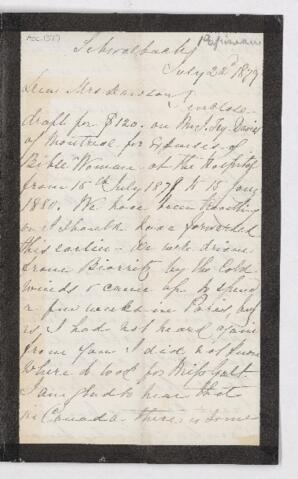 Schwalbach
July 22d 1879
Dear Mrs Dawson
I enclose
draft for $120. on Mr J. Try Davies
of Montreal for expenses of
Bible Woman at the Hospital
from 15th July 1879 to 15 Jany
1880. We have been travelling
or I should have forwarded
this earlier. We were driven
from Biarritz by the Cold
winds & came up to spend
a few weeks in Paris but
as I had not heard again
from you I did not know
where to look for Miss Galt
I am glad to hear that
in Canada there is some